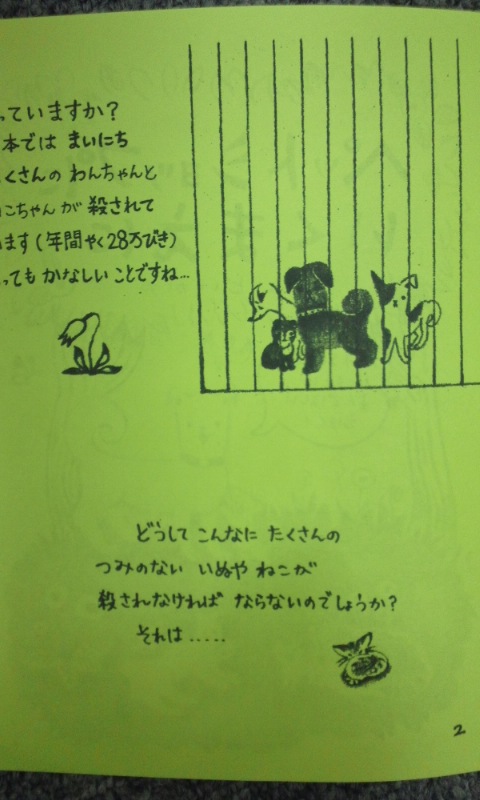 っていますか?
本では まいにち
くさんの わんちゃんと
こちゃん が 殺されて
ます(年間やく28万びき)
っても かなしい ことですね…
どうして こんなに たくさんの
つみのない いぬや ねこが
殺されなければ ならないのでしょうか?
それは.....
2